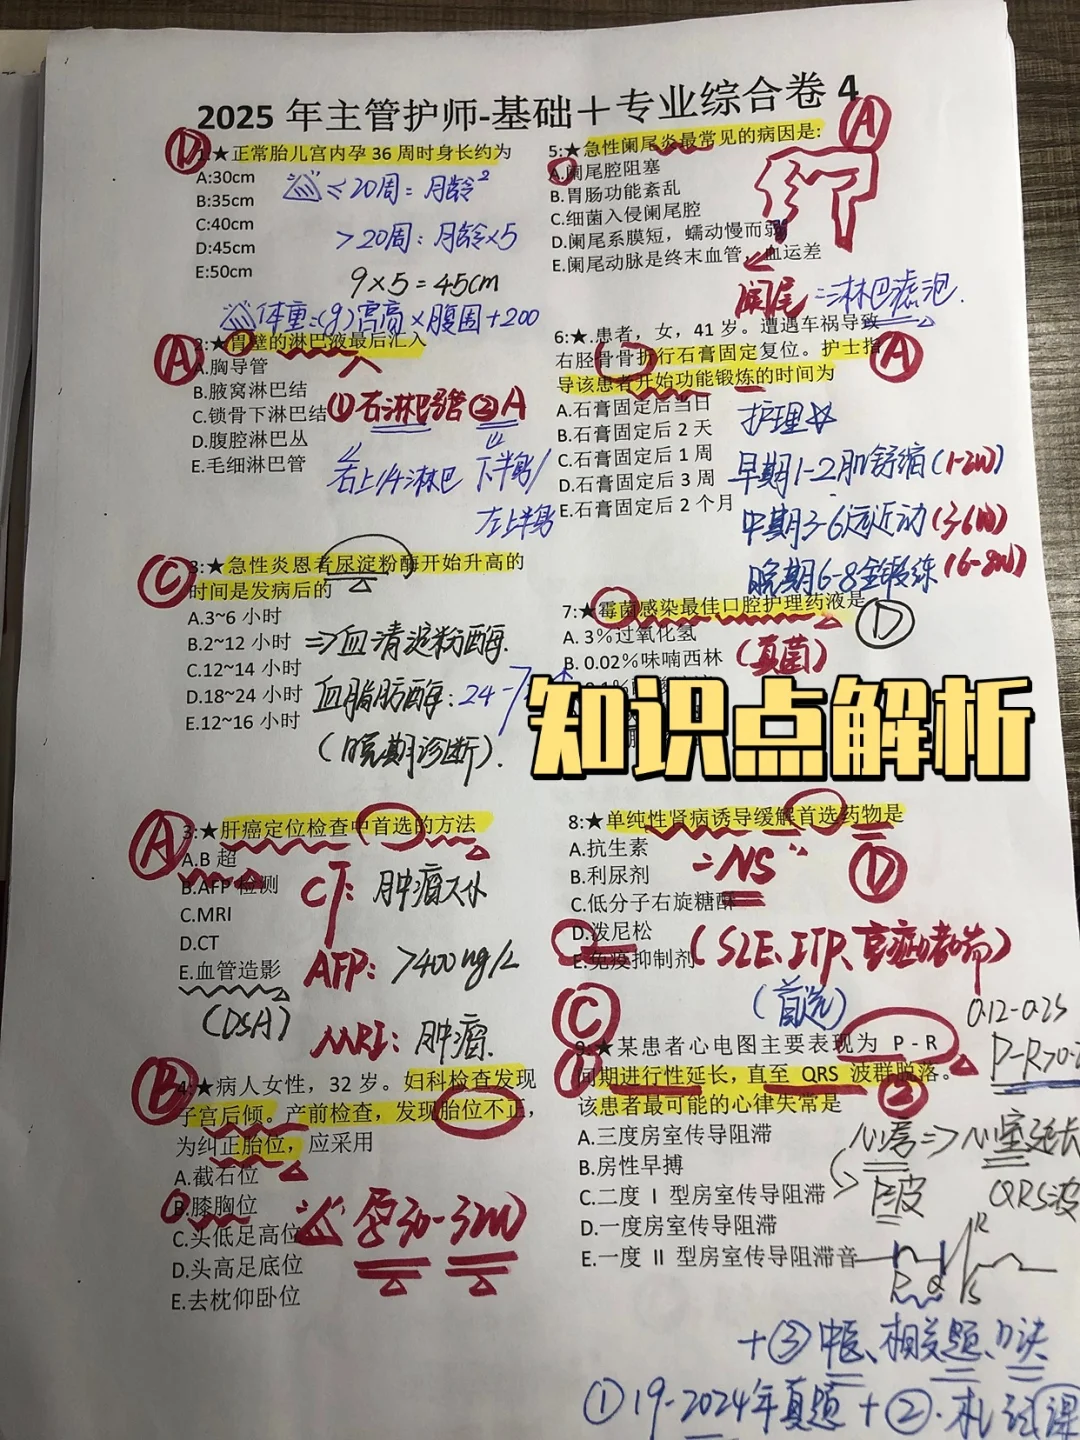 2025 年主管护师-基础＋专业综合卷 4
D
1:★正常胎儿宫内孕 36 周时身长约为
A:30cm
B:35cm
C:40cm
D:45cm
E:50cm
≤20周：月龄²
>20周：月龄×5
9×5=45cm
体重(g)宫高×腹围+200
A
2:★胃壁的淋巴液最后汇入
A.胸导管
B.腋窝淋巴结
C.锁骨下淋巴结
D.腹腔淋巴丛
E.毛细淋巴管
①右淋巴导管 ②A
右上1/4淋巴 下半身/
左上半身
C
3:★急性炎恩者尿淀粉酶开始升高的
时间是发病后的
A.3~6 小时
B.2~12 小时
C.12~14 小时
D.18~24 小时
E.12~16 小时
⇒血清淀粉酶.
血脂肪酶：24-7
(晚期诊断).
A
3:★肝癌定位检查中首选的方法
A.B 超
B.AFP 检测
C.MRI
D.CT
E.血管造影
(DSA)
CT: 肿瘤大小
AFP: >400ng/L
MRI: 肿瘤.
B
4:★病人女性，32 岁。妇科检查发现
子宫后倾。产前检查，发现胎位不正，
为纠正胎位，应采用
A.截石位
B.膝胸位
C.头低足高位
D.头高足底位
E.去枕仰卧位
孕30-32W
A
5:★急性阑尾炎最常见的病因是:
A.阑尾腔阻塞
B.胃肠功能紊乱
C.细菌入侵阑尾腔
D.阑尾系膜短，蠕动慢而弱
E.阑尾动脉是终末血管，血运差
阑尾=淋巴滤泡.
A
6:★.患者，女，41 岁。遭遇车祸导致
右胫骨骨折行石膏固定复位。护士指
导该患者开始功能锻炼的时间为
A.石膏固定后当日
B.石膏固定后 2 天
C.石膏固定后 1 周
D.石膏固定后 3 周
E.石膏固定后 2 个月
护理
早期1-2肌舒缩(1-2W)
中期3-6远近动(3-6W)
晚期6-8全锻练(6-8W)
7:★霉菌感染最佳口腔护理药液是
D
A. 3%过氧化氢
B. 0.02%呋喃西林
(真菌)
知识点解析
8:★单纯性肾病诱导缓解首选药物是
A.抗生素
B.利尿剂
C.低分子右旋糖酐
D.泼尼松
E.免疫抑制剂
=NS"
D
(SLE、ITP、哮喘)
(首选)
C
9:★某患者心电图主要表现为 P-R
间期进行性延长，直至 QRS 波群脱落。
该患者最可能的心律失常是
A.三度房室传导阻滞
B.房性早搏
C.二度 I 型房室传导阻滞
D.一度房室传导阻滞
E.一度 II 型房室传导阻滞音
②
P-R>0.2
心房⇒心室延长
P波 QRS波
R
Q S
+③中医、相关题、方法
①19-2024年真题+②.